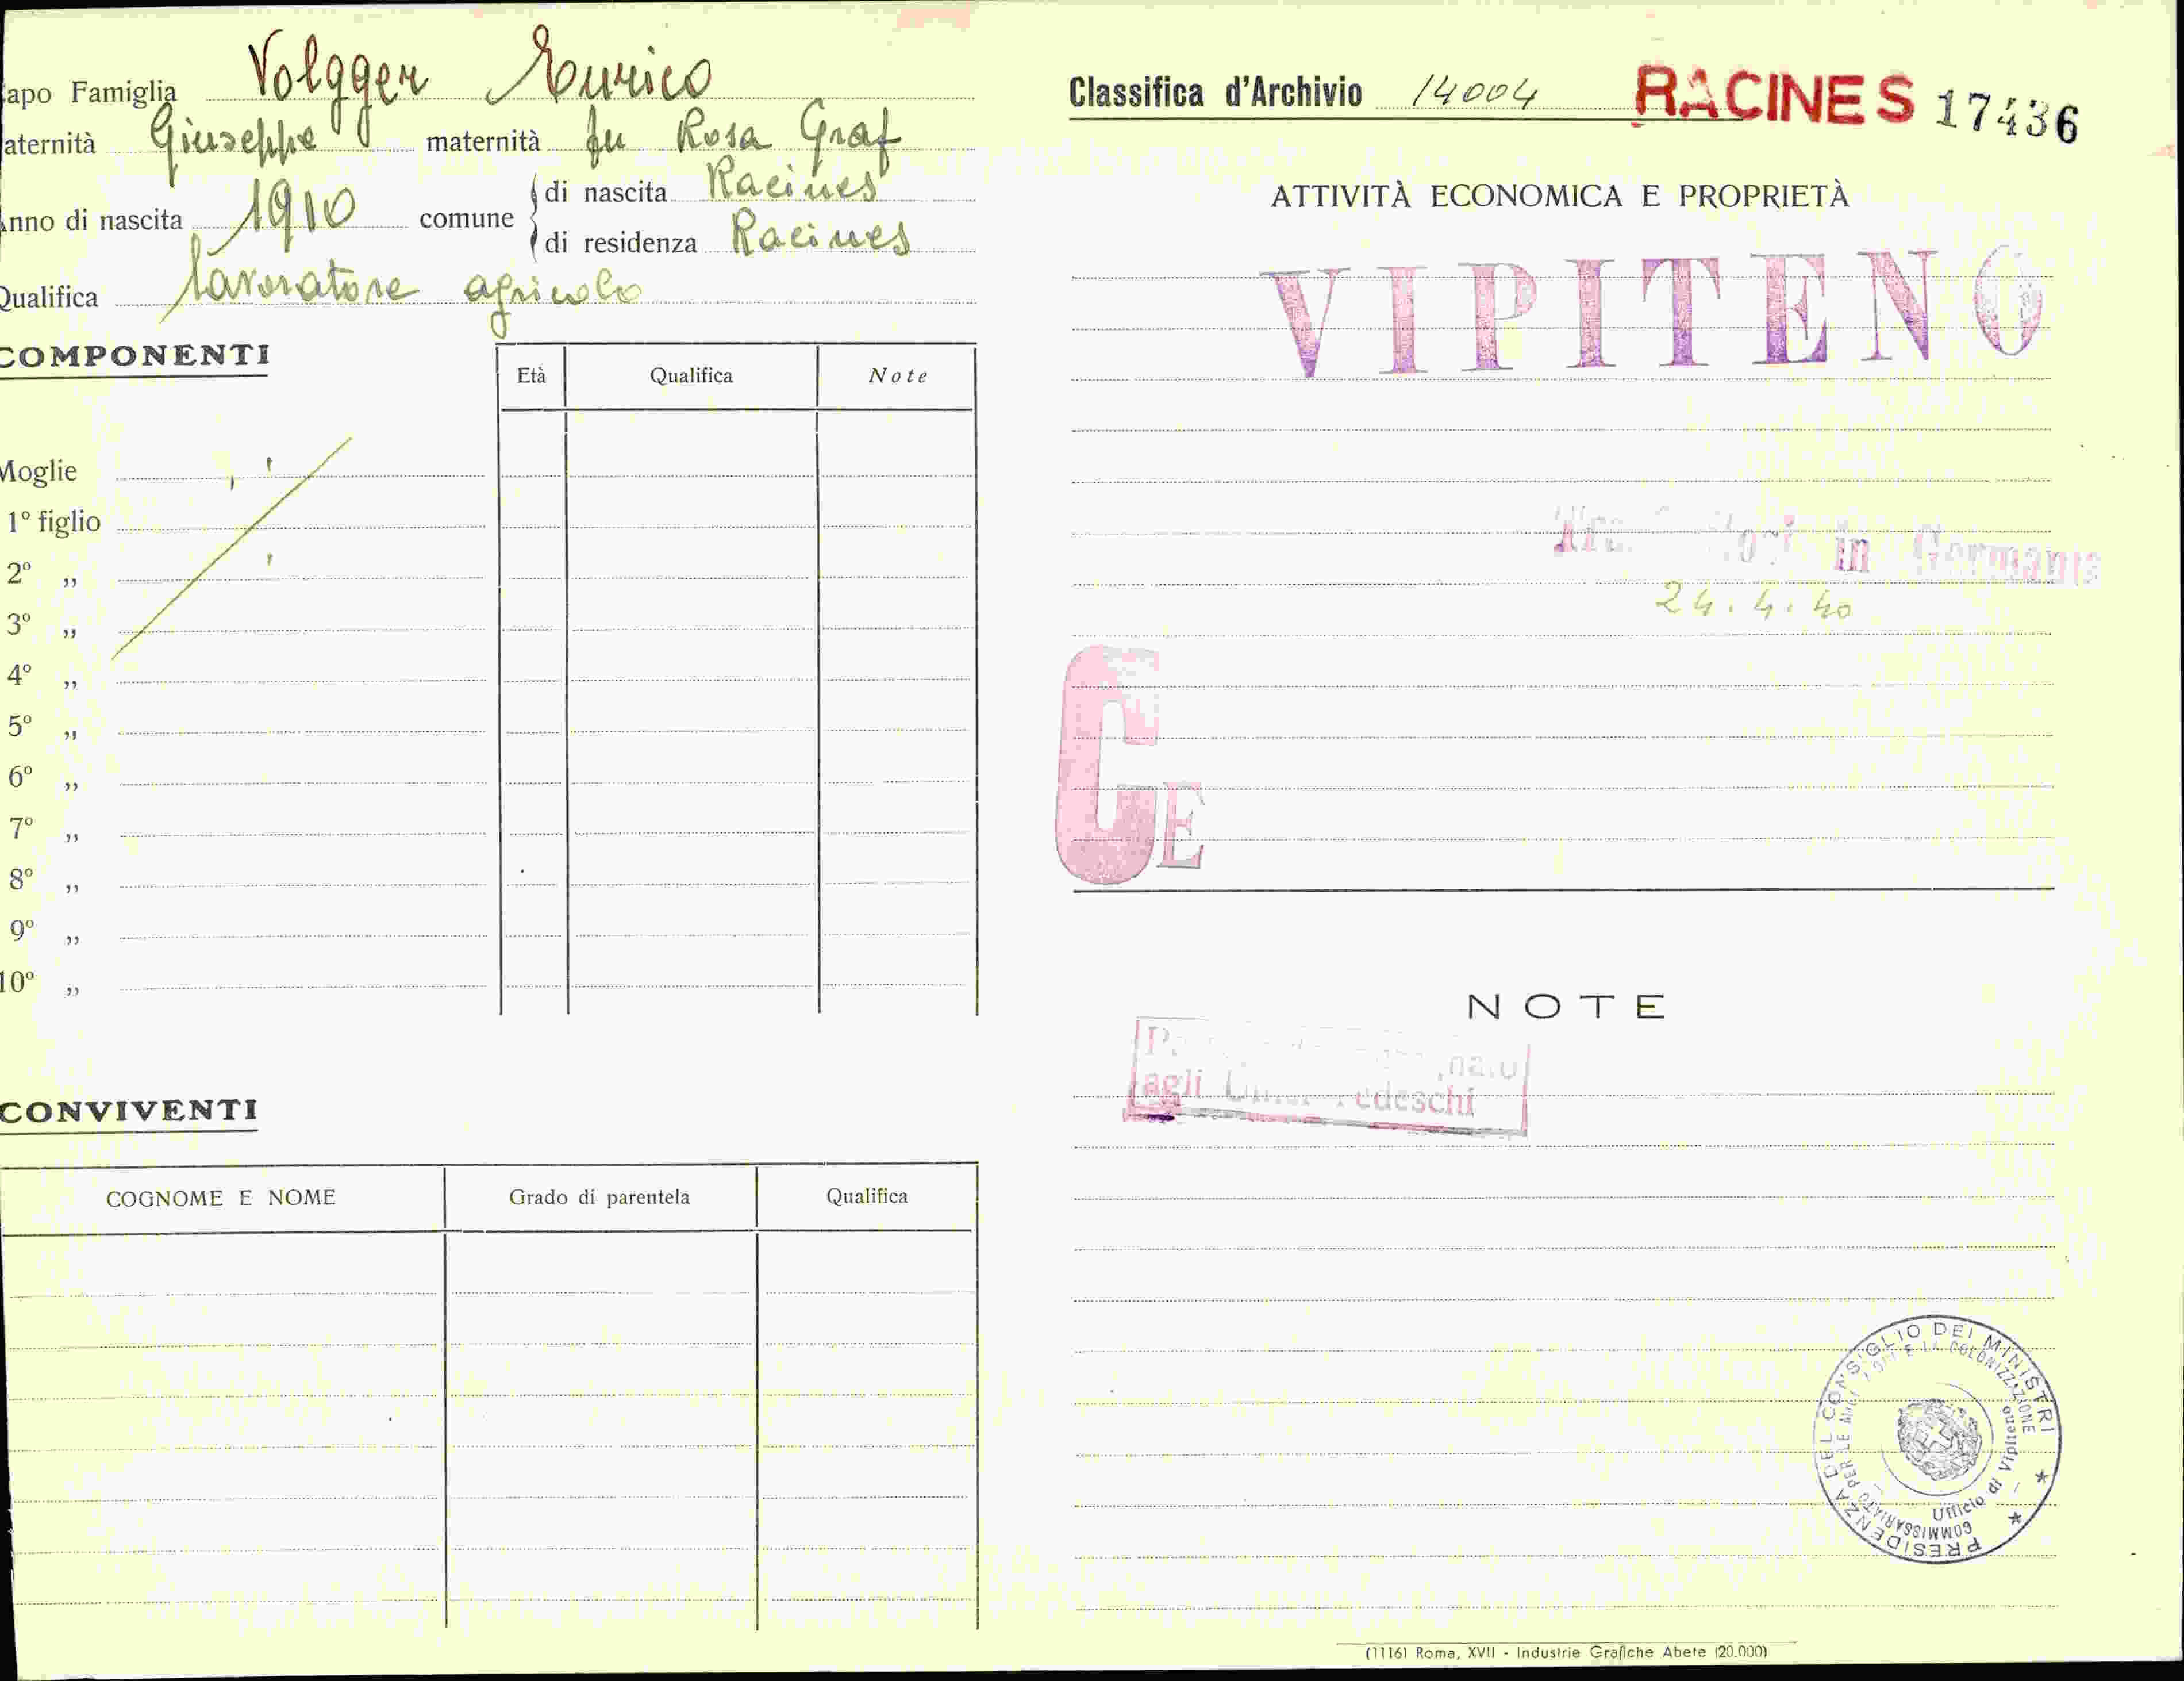 apo Famiglia Volgger Enrico
aternità Giuseppe maternità fu Rosa Graf
nno di nascita 1910 comune di nascita Racines
di residenza Racines
Qualifica lavoratore agricolo
COMPONENTI
Età Qualifica Note
Moglie
1º figlio
2º „
3º „
4º „
5º „
6º „
7º „
8º „
9º „
10º „
CONVIVENTI
COGNOME E NOME Grado di parentela Qualifica
Classifica d'Archivio 14004 RACINES 17436
ATTIVITÀ ECONOMICA E PROPRIETÀ
VIPITENO
in Germania
24.4.40
CE
NOTE
agli Tedeschi
PRESIDENZA DEL CONSIGLIO DEI MINISTRI
COMMISSARIATO PER LE E LA COLONIZZAZIONE
Ufficio di Vipiteno
(1116) Roma, XVII - Industrie Grafiche Abete (20.000)